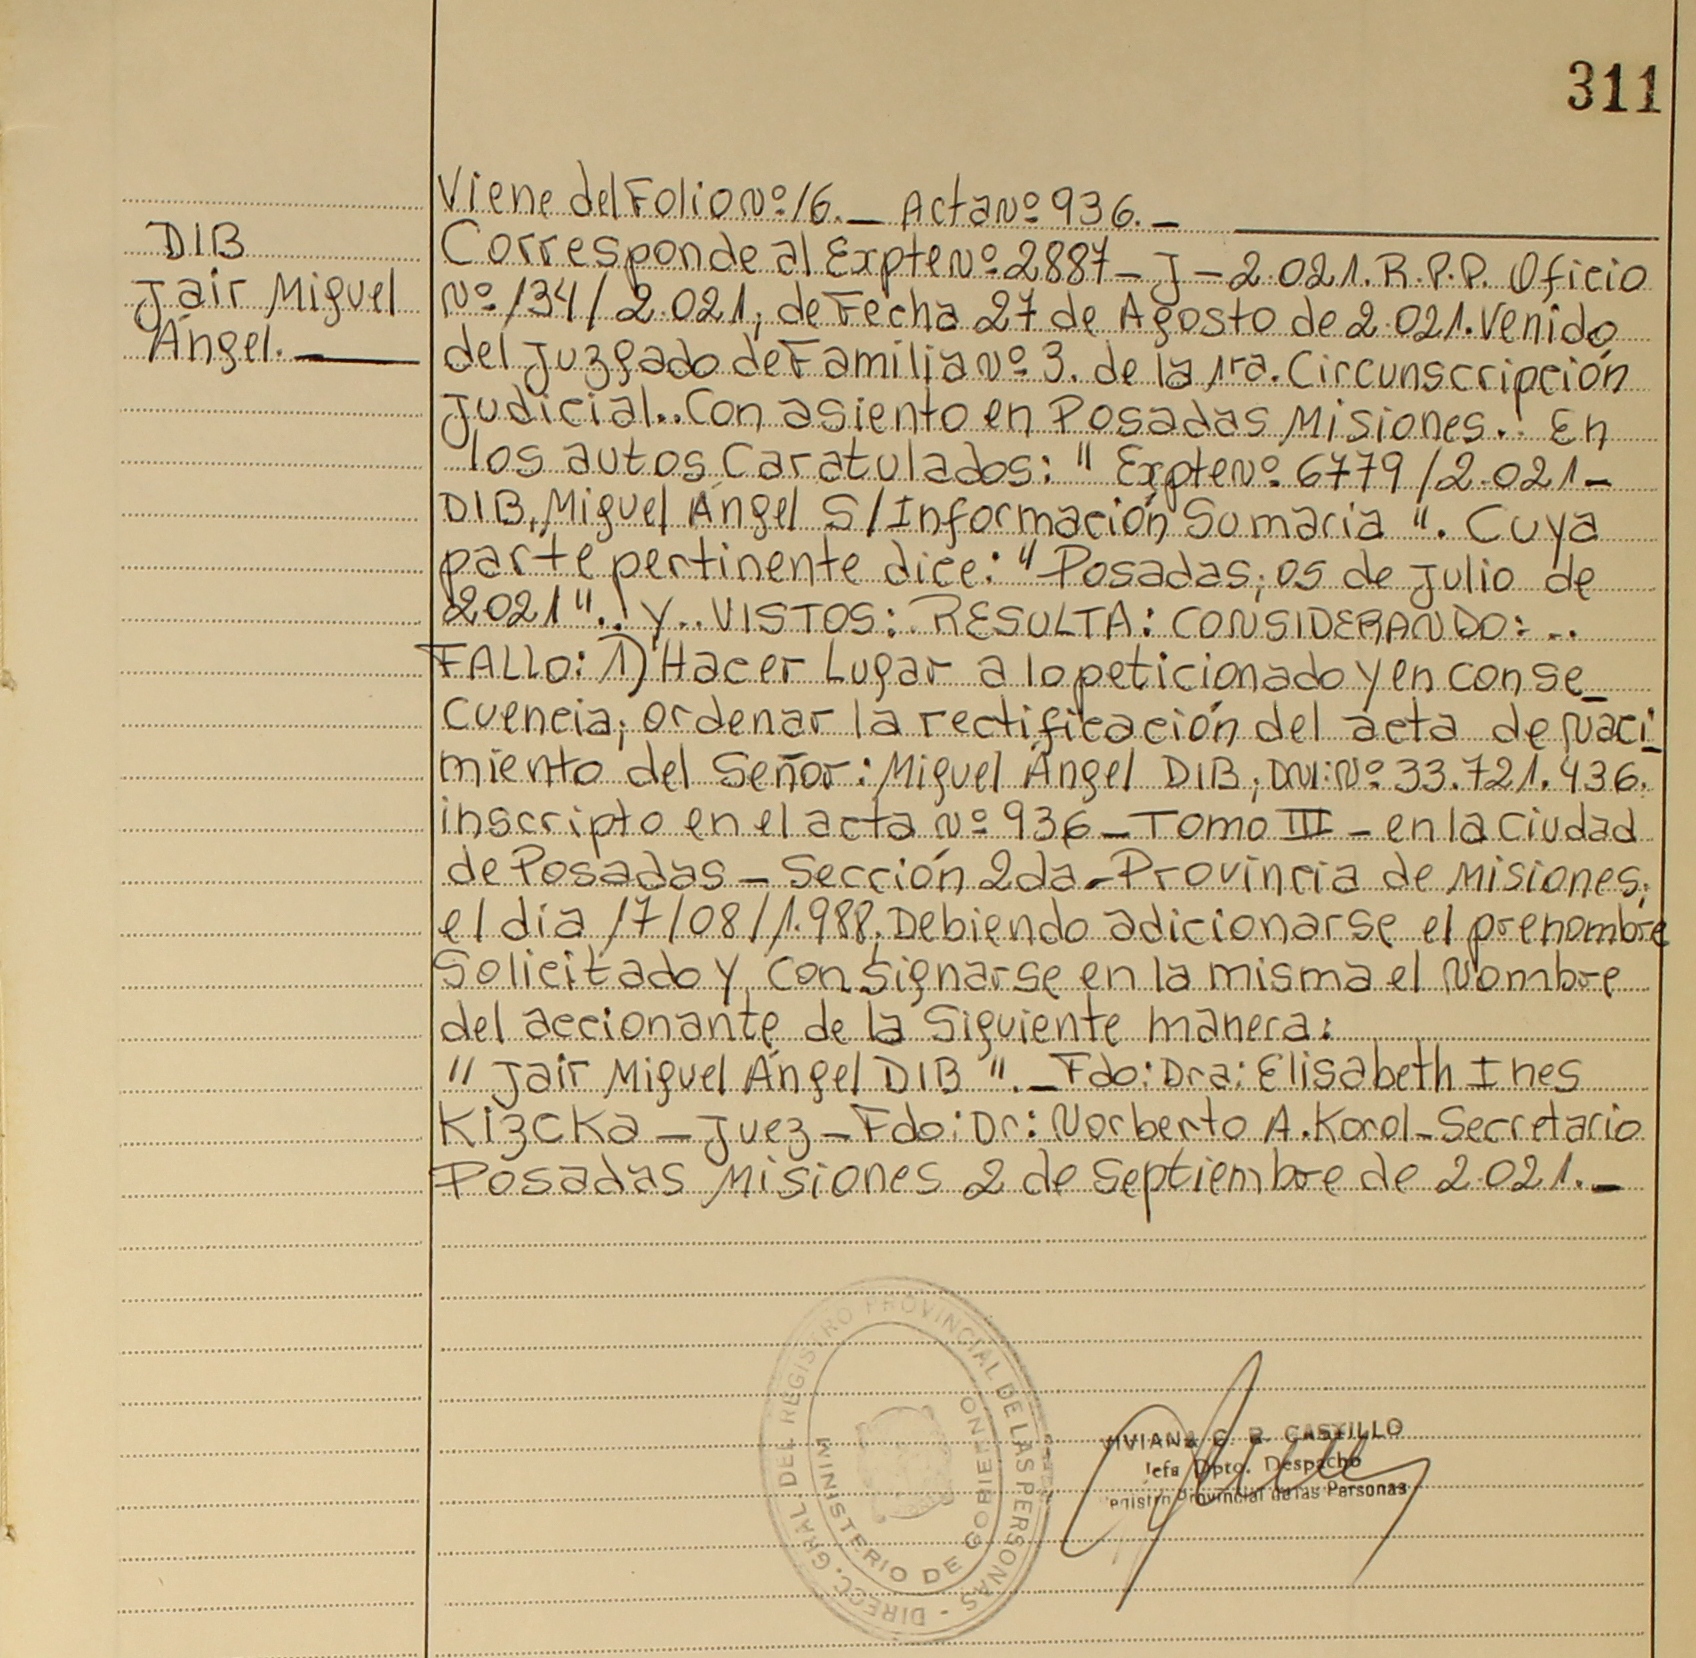 311
Viene del Folio Nº 16._ Acta Nº 936._
DIB
Jair Miguel
Ángel.
Corresponde al Expte Nº 2887_J_2.021. R.P.P. Oficio
Nº 134/2.021, de Fecha 27 de Agosto de 2.021. Venido
del Juzgado de Familia Nº 3. de la 1ra. Circunscripción
Judicial.. Con asiento en Posadas Misiones.. En
los autos Caratulados: " Expte Nº 6779/2.021_
DIB, Miguel Ángel S/Información Sumaria ". Cuya
parte pertinente dice: "Posadas, 05 de Julio de
2021".. Y.. VISTOS: RESULTA: CONSIDERANDO: ..
FALLO: 1) Hacer Lugar a lo peticionado y en conse_
cuencia, ordenar la rectificación del acta de Naci_
miento del Señor: Miguel Ángel DIB, DNI: Nº 33.721.436.
inscripto en el acta Nº 936_Tomo III_ en la Ciudad
de Posadas_Sección 2da_Provincia de Misiones,
el día 17/08/1.988, Debiendo adicionarse el prenombre
Solicitado y, Consignarse en la misma el Nombre
del accionante de la Siguiente manera:
" Jair Miguel Ángel DIB "._Fdo: Dra: Elisabeth Ines
Kizcka_Juez_Fdo: Dr: Norberto A. Korol_Secretario
Posadas Misiones 2 de Septiembre de 2.021._
DIRECC. GRAL. DEL REGISTRO PROVINCIAL DE LAS PERSONAS -
MINISTERIO DE GOBIERNO
VIVIANA G. B. CASTILLO
Jefa Dpto. Despacho
Provincial de las Personas